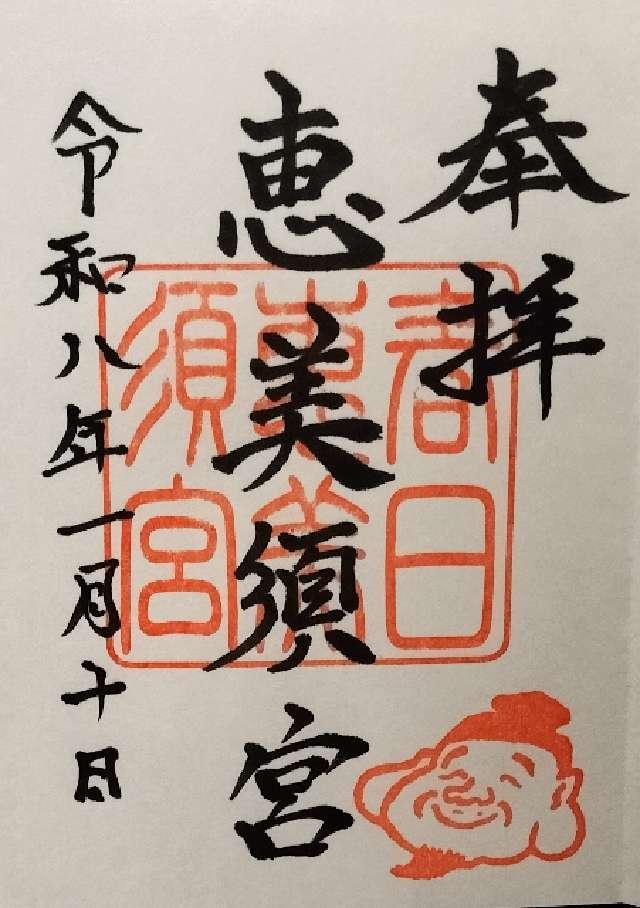 奉拝
恵美須宮
令和八年一月十日
春日
恵美
須宮